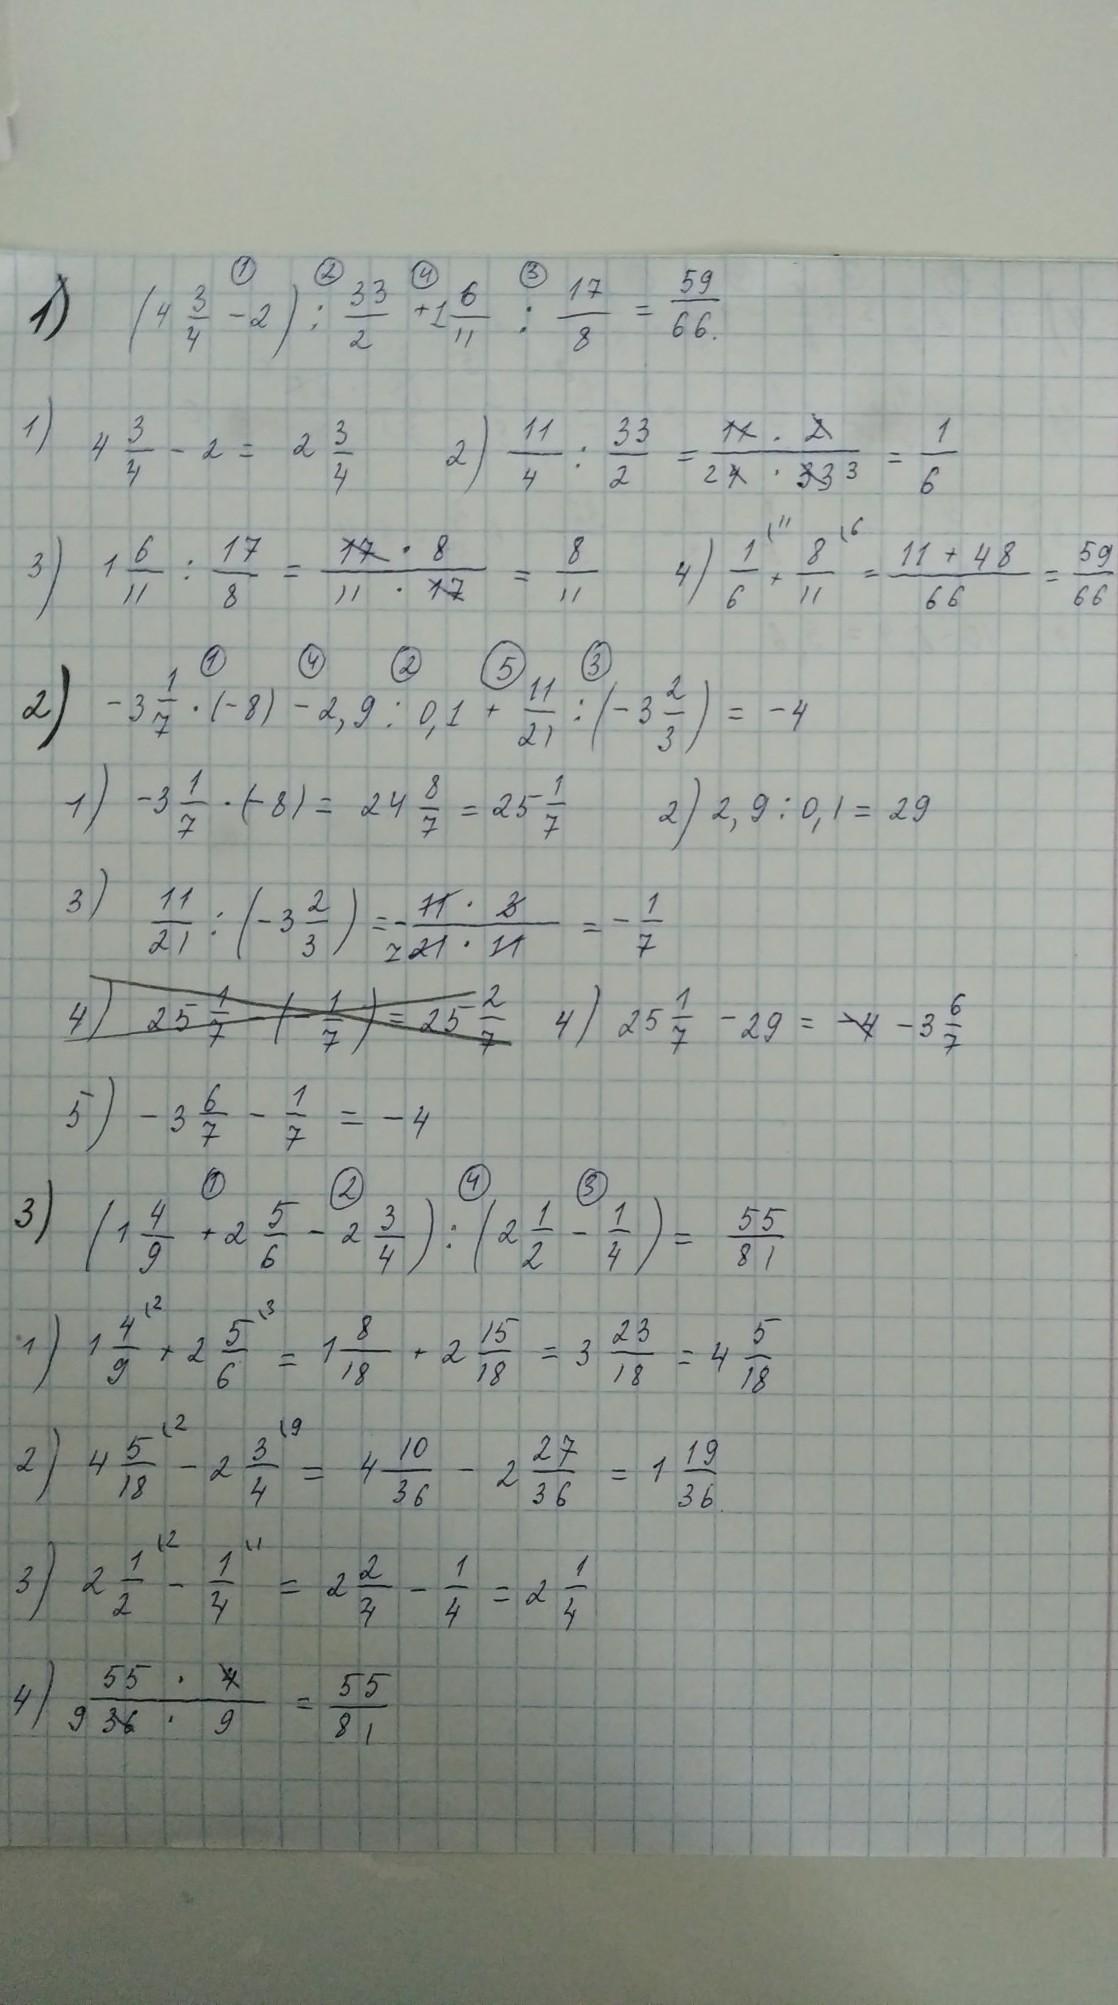 ① ② ④ ③
1) (4 3/4 - 2) : 33/2 + 1 6/11 : 17/8 = 59/66.
1) 4 3/4 - 2 = 2 3/4 2) 11/4 : 33/2 = 11 · 2 / 2 4 · 33 3 = 1/6
3) 1 6/11 : 17/8 = 17 · 8 / 11 · 17 = 8/11 4) 1/6 \11 + 8/11 \6 = 11 + 48 / 66 = 59/66
① ④ ② ⑤ ③
2) -3 1/7 · (-8) - 2,9 : 0,1 + 11/21 : (-3 2/3) = -4
1) -3 1/7 · (-8) = 24 8/7 = 25 1/7 2) 2,9 : 0,1 = 29
3) 11/21 : (-3 2/3) = - 11 · 3 / 7 21 · 11 = - 1/7
4) 25 1/7 - (- 1/7) = 25 2/7 4) 25 1/7 - 29 = -4 -3 6/7
5) -3 6/7 - 1/7 = -4
① ② ④ ③
3) (1 4/9 + 2 5/6 - 2 3/4) : (2 1/2 - 1/4) = 55/81
1) 1 4/9 \2 + 2 5/6 \3 = 1 8/18 + 2 15/18 = 3 23/18 = 4 5/18
2) 4 5/18 \2 - 2 3/4 \9 = 4 10/36 - 2 27/36 = 1 19/36
3) 2 1/2 \2 - 1/4 \1 = 2 2/4 - 1/4 = 2 1/4
4) 55 · 4 / 9 36 · 9 = 55/81